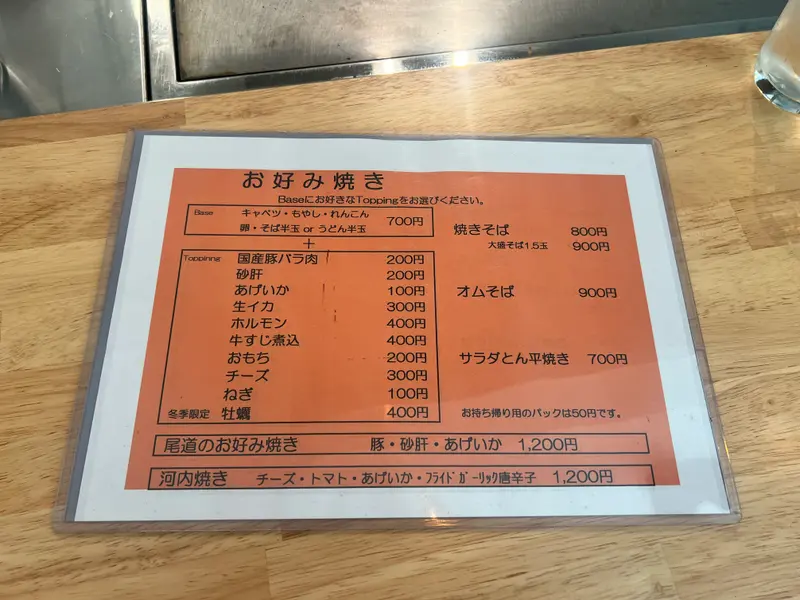 お好み焼き
Baseにお好きなToppingをお選びください。
Base キャベツ・もやし・れんこん
卵・そば半玉 or うどん半玉 700円
+
Topping 国産豚バラ肉 200円
砂肝 200円
あげいか 100円
生イカ 300円
ホルモン 400円
牛すじ煮込 400円
おもち 200円
チーズ 300円
ねぎ 100円
冬季限定 牡蠣 400円
焼きそば 800円
大盛そば1.5玉 900円
オムそば 900円
サラダとん平焼き 700円
お持ち帰り用のパックは50円です。
尾道のお好み焼き 豚・砂肝・あげいか 1,200円
河内焼き チーズ・トマト・あげいか・ﾌﾗｲﾄﾞｶﾞｰﾘｯｸ唐辛子 1,200円